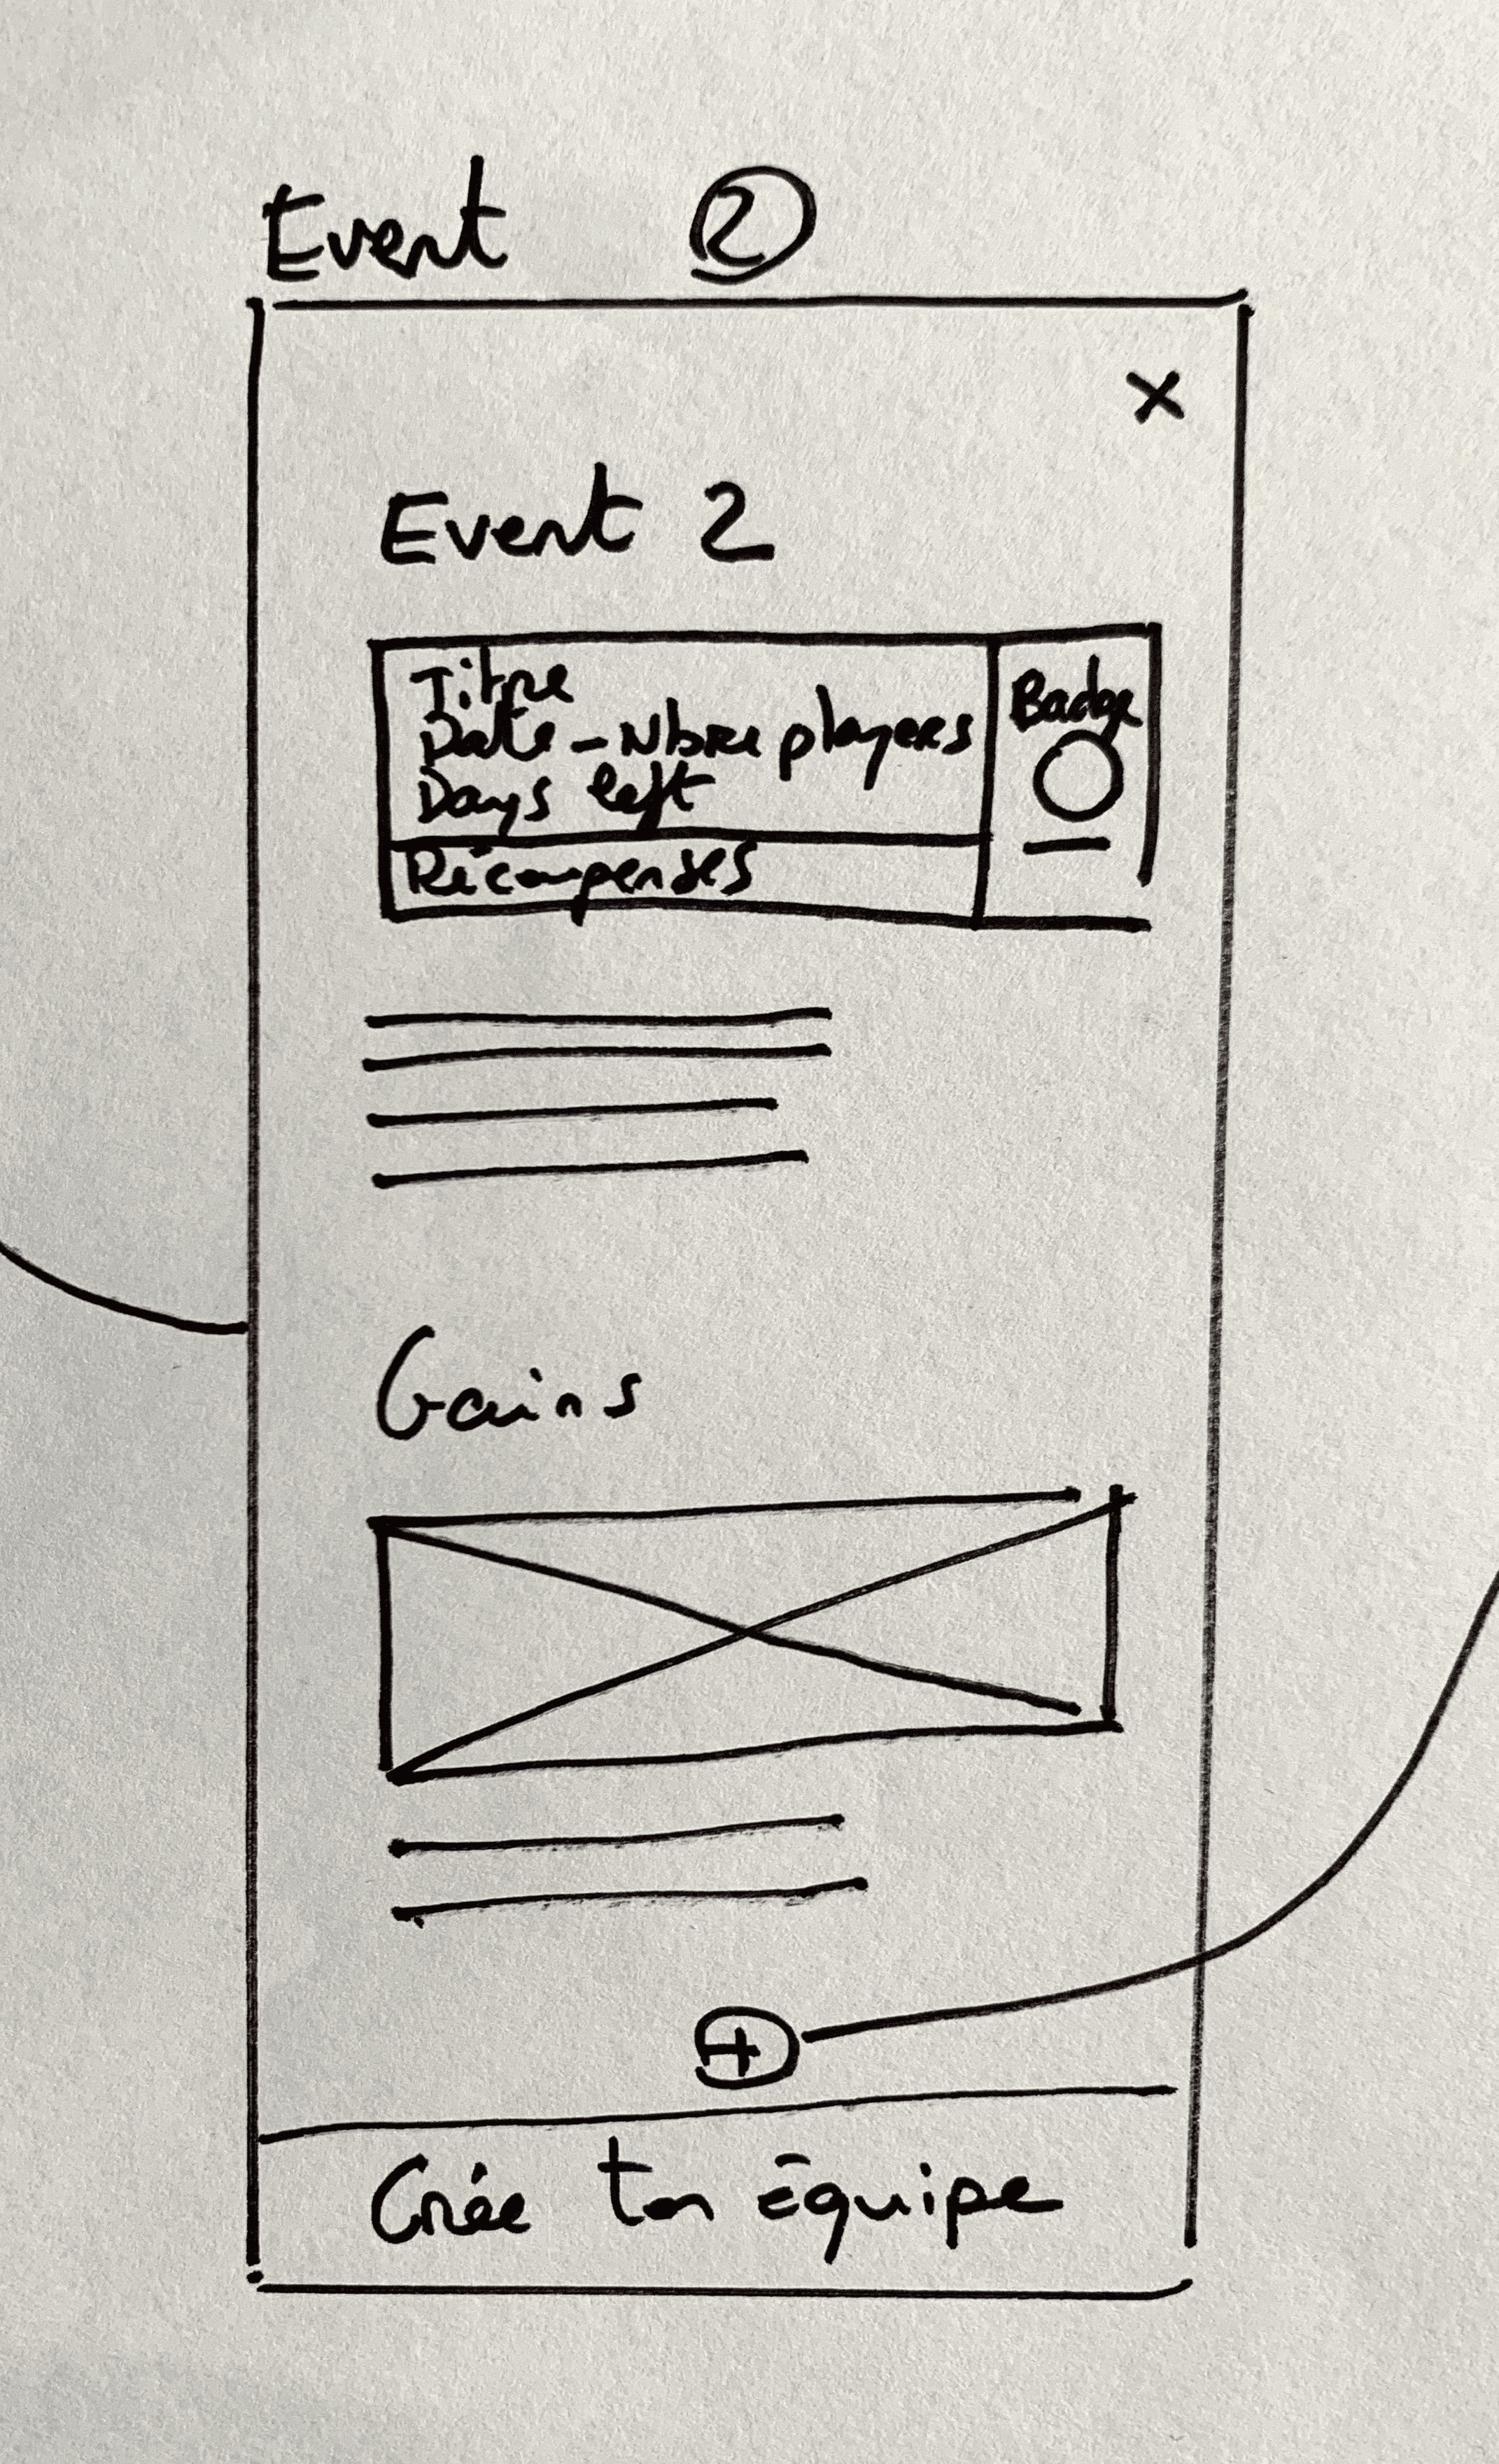 Event 2
×
Event 2
Titre
Date - Nbre players
Days left
Récompenses
Badge
Gains
+
Crée ton équipe